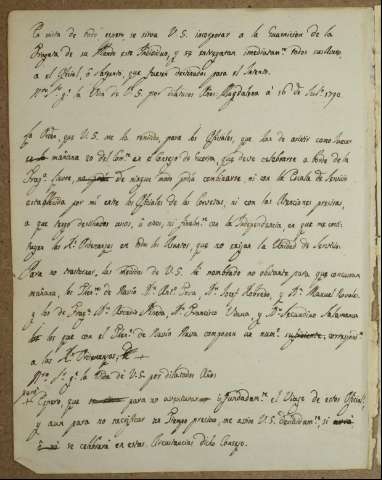 En vista de todo espero se sirva V.S. incorporar a la Guarnicion de la
Fragata de su Mando este Individuo, y se entregaran inmediatam.te todos
a el Oficial, ó Sargento, que fueren destinados para el Intento.
N.ro S.or g.e la Vida de V.S. por dilatados Años. Magdalena á 16 de Jul.o 1790.
La Orden, que V.S. me ha remitido, para los Oficiales, que han de asistir como Jueces
mañana 20 del Corr.te en el Consejo de Guerra, que deve celebrarse a bordo de la
Frag.ta de ningun modo podia combinarse, ni con la Escala de Servicio
establecida por mi entre los Oficiales de las Corvetas, ni con las Atenciones precisas,
a que tengo destinados unos, ó otros, ni finalm.te con la Independencia, en que me
las R.s Ordenanzas en todos los Asuntos, que no exijan la Unidad de Servicio.
Para no trastornar, las medidas de V.S. he nombrado no obstante para que concurran
mañana, los Then.tes de Navio D.n Ant.o Tova, D.n Josef Robredo, y D.n Manuel
y los de Frag.ta D.n Arcadio Pineda, D.n Francisco Viana, y D.n Secundino Salamanca
los que con el Then.te de Navio componen un num.o suficiente,
a las R.s Ordenanzas,
N.ro S.or g.e la Vida de V.S. por dilatados Años
+ Espero, que para no aventurar infundadam.te el Viaje de estos Oficiales
y aun para no sacrificar un Tiempo precioso, me avise V.S. si
ó no se celebrará en estas Circunstancias dicho Consejo.